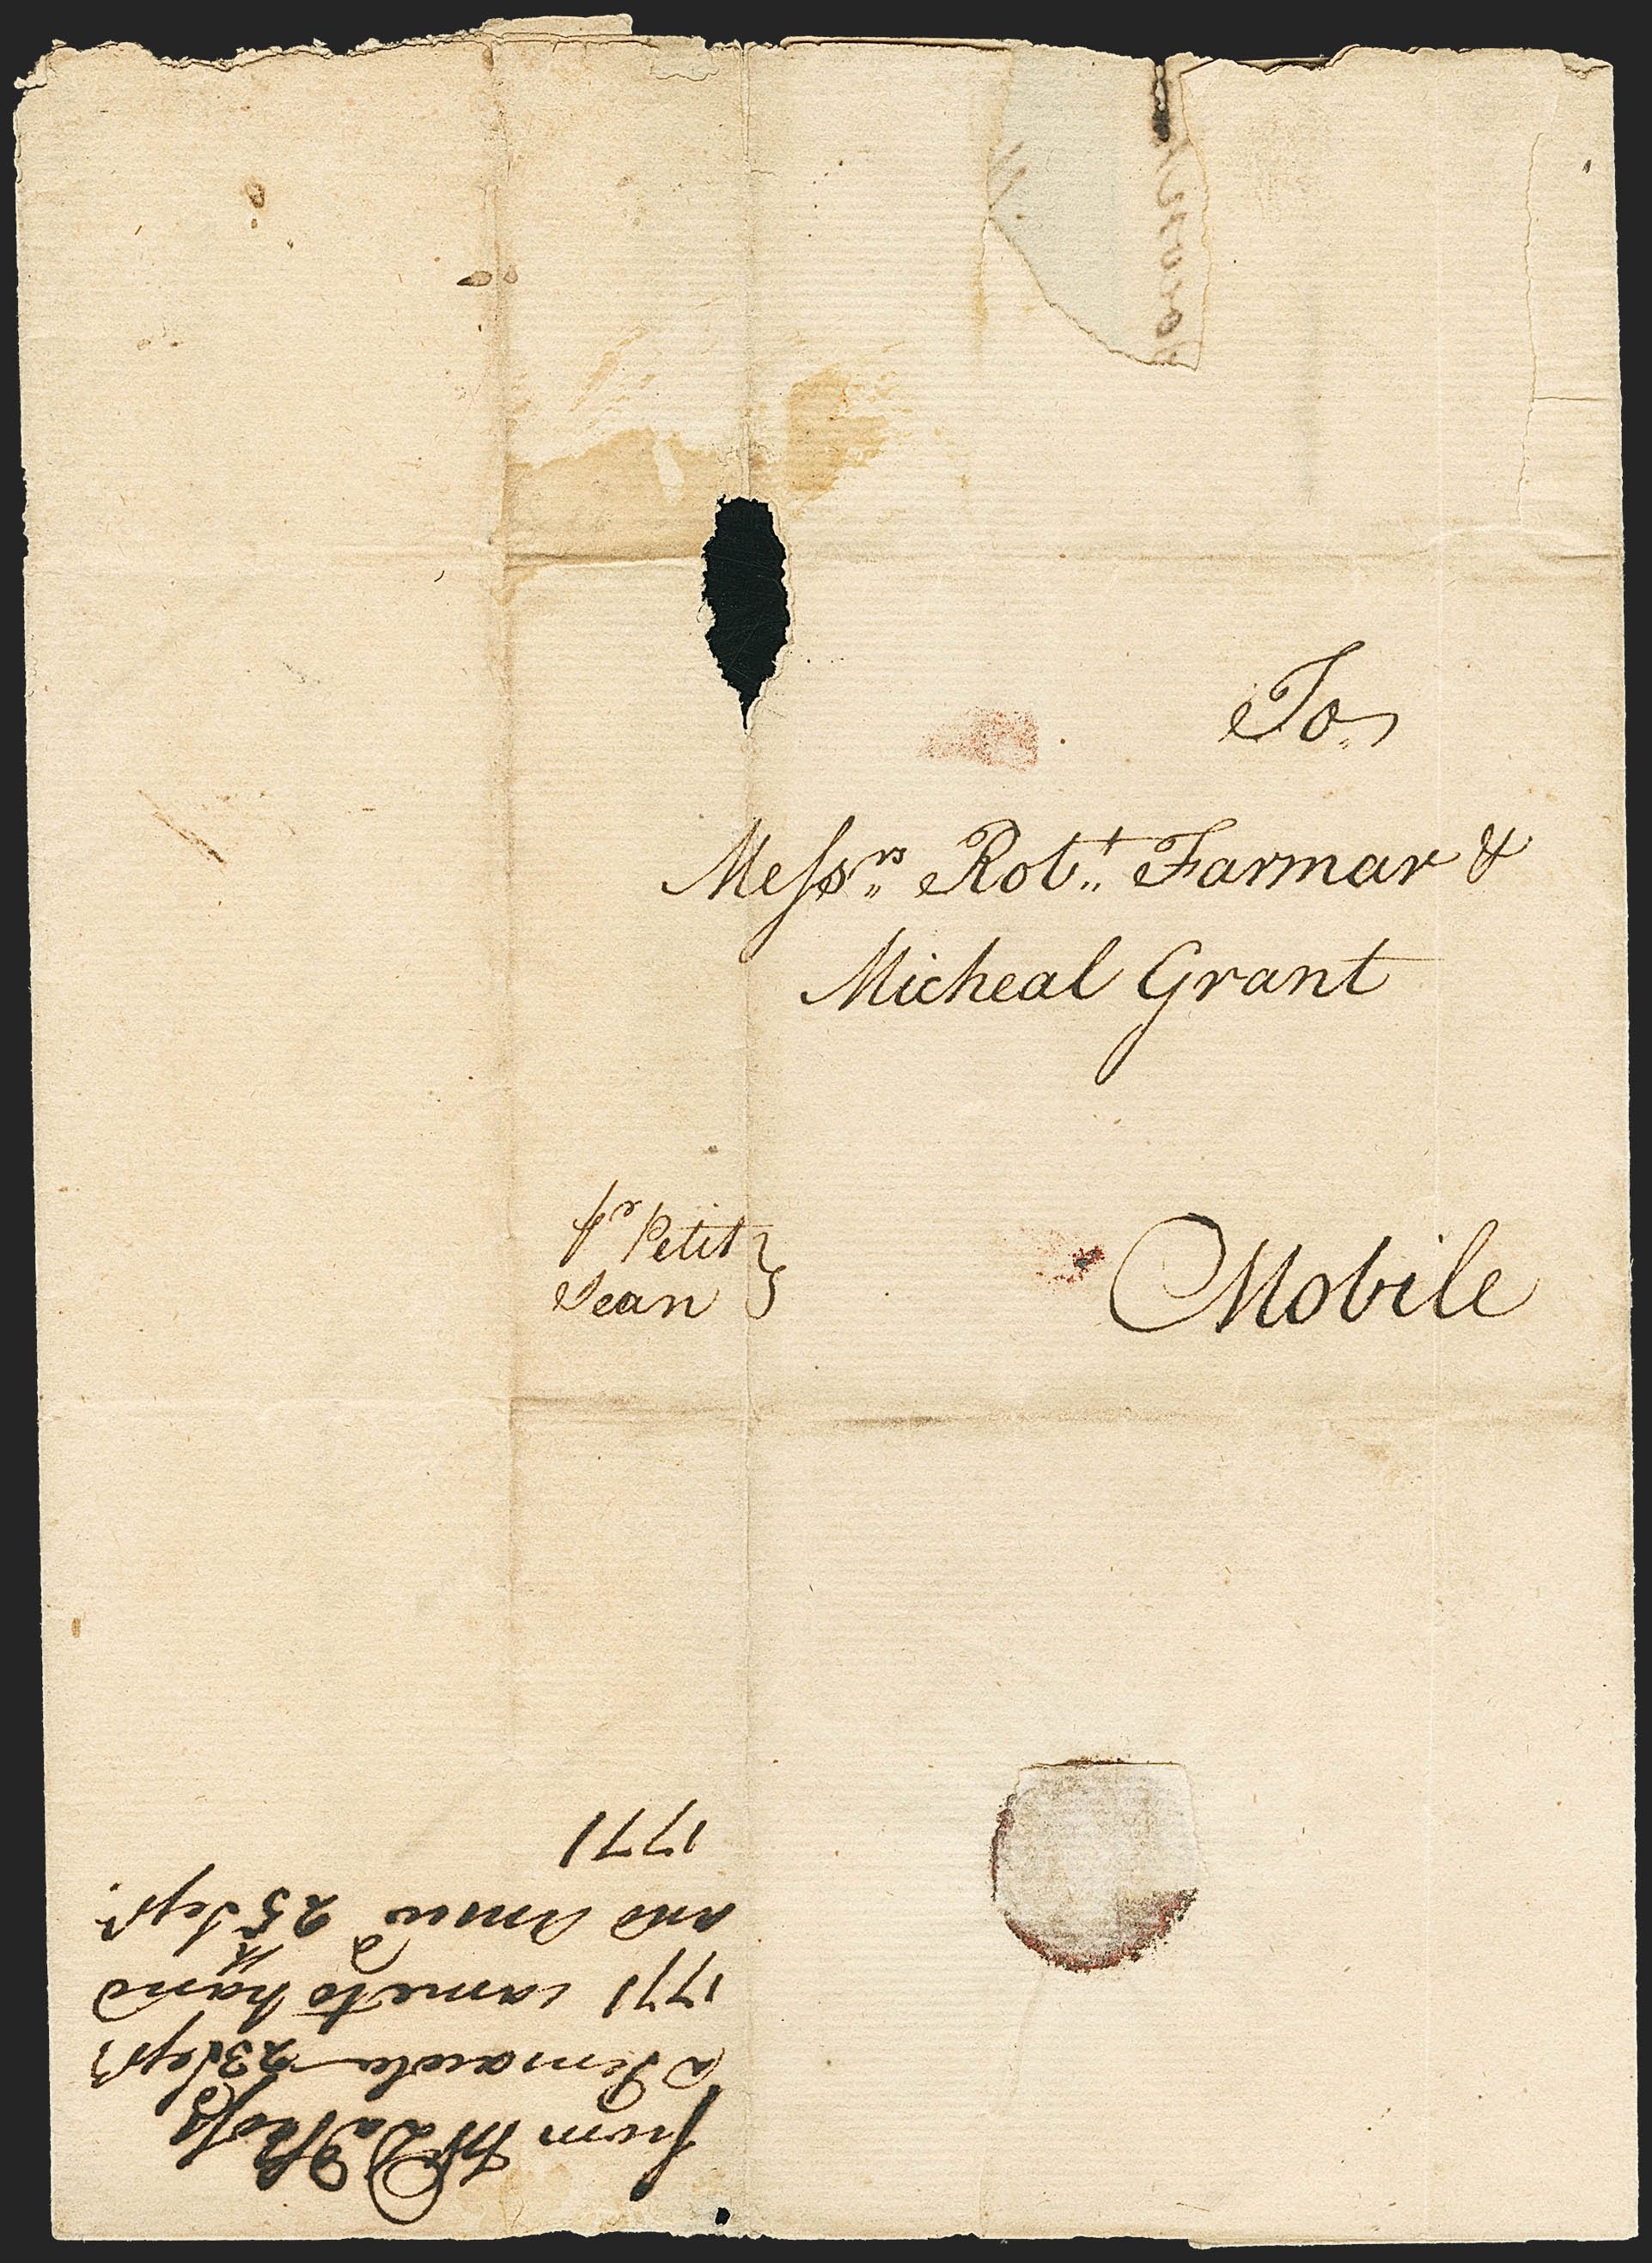 To
Messrs Robt Farmar &
Micheal Grant
pr Petit
Jean
Mobile
from Mr Da: Ross
a Pensacola 23 Septr
1771 came to hand
and Answd 25th Septr
1771